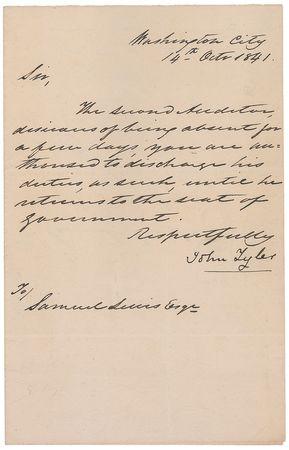 Washington City
14th Octo 1841.
Sir,
The second Auditor,
desirous of being absent for
a few days, you are au-
thorised to discharge his
duties, as such, until he
returns to the seat of
Government.
Respectfully
John Tyler
To/
Samuel Lewis Esqr